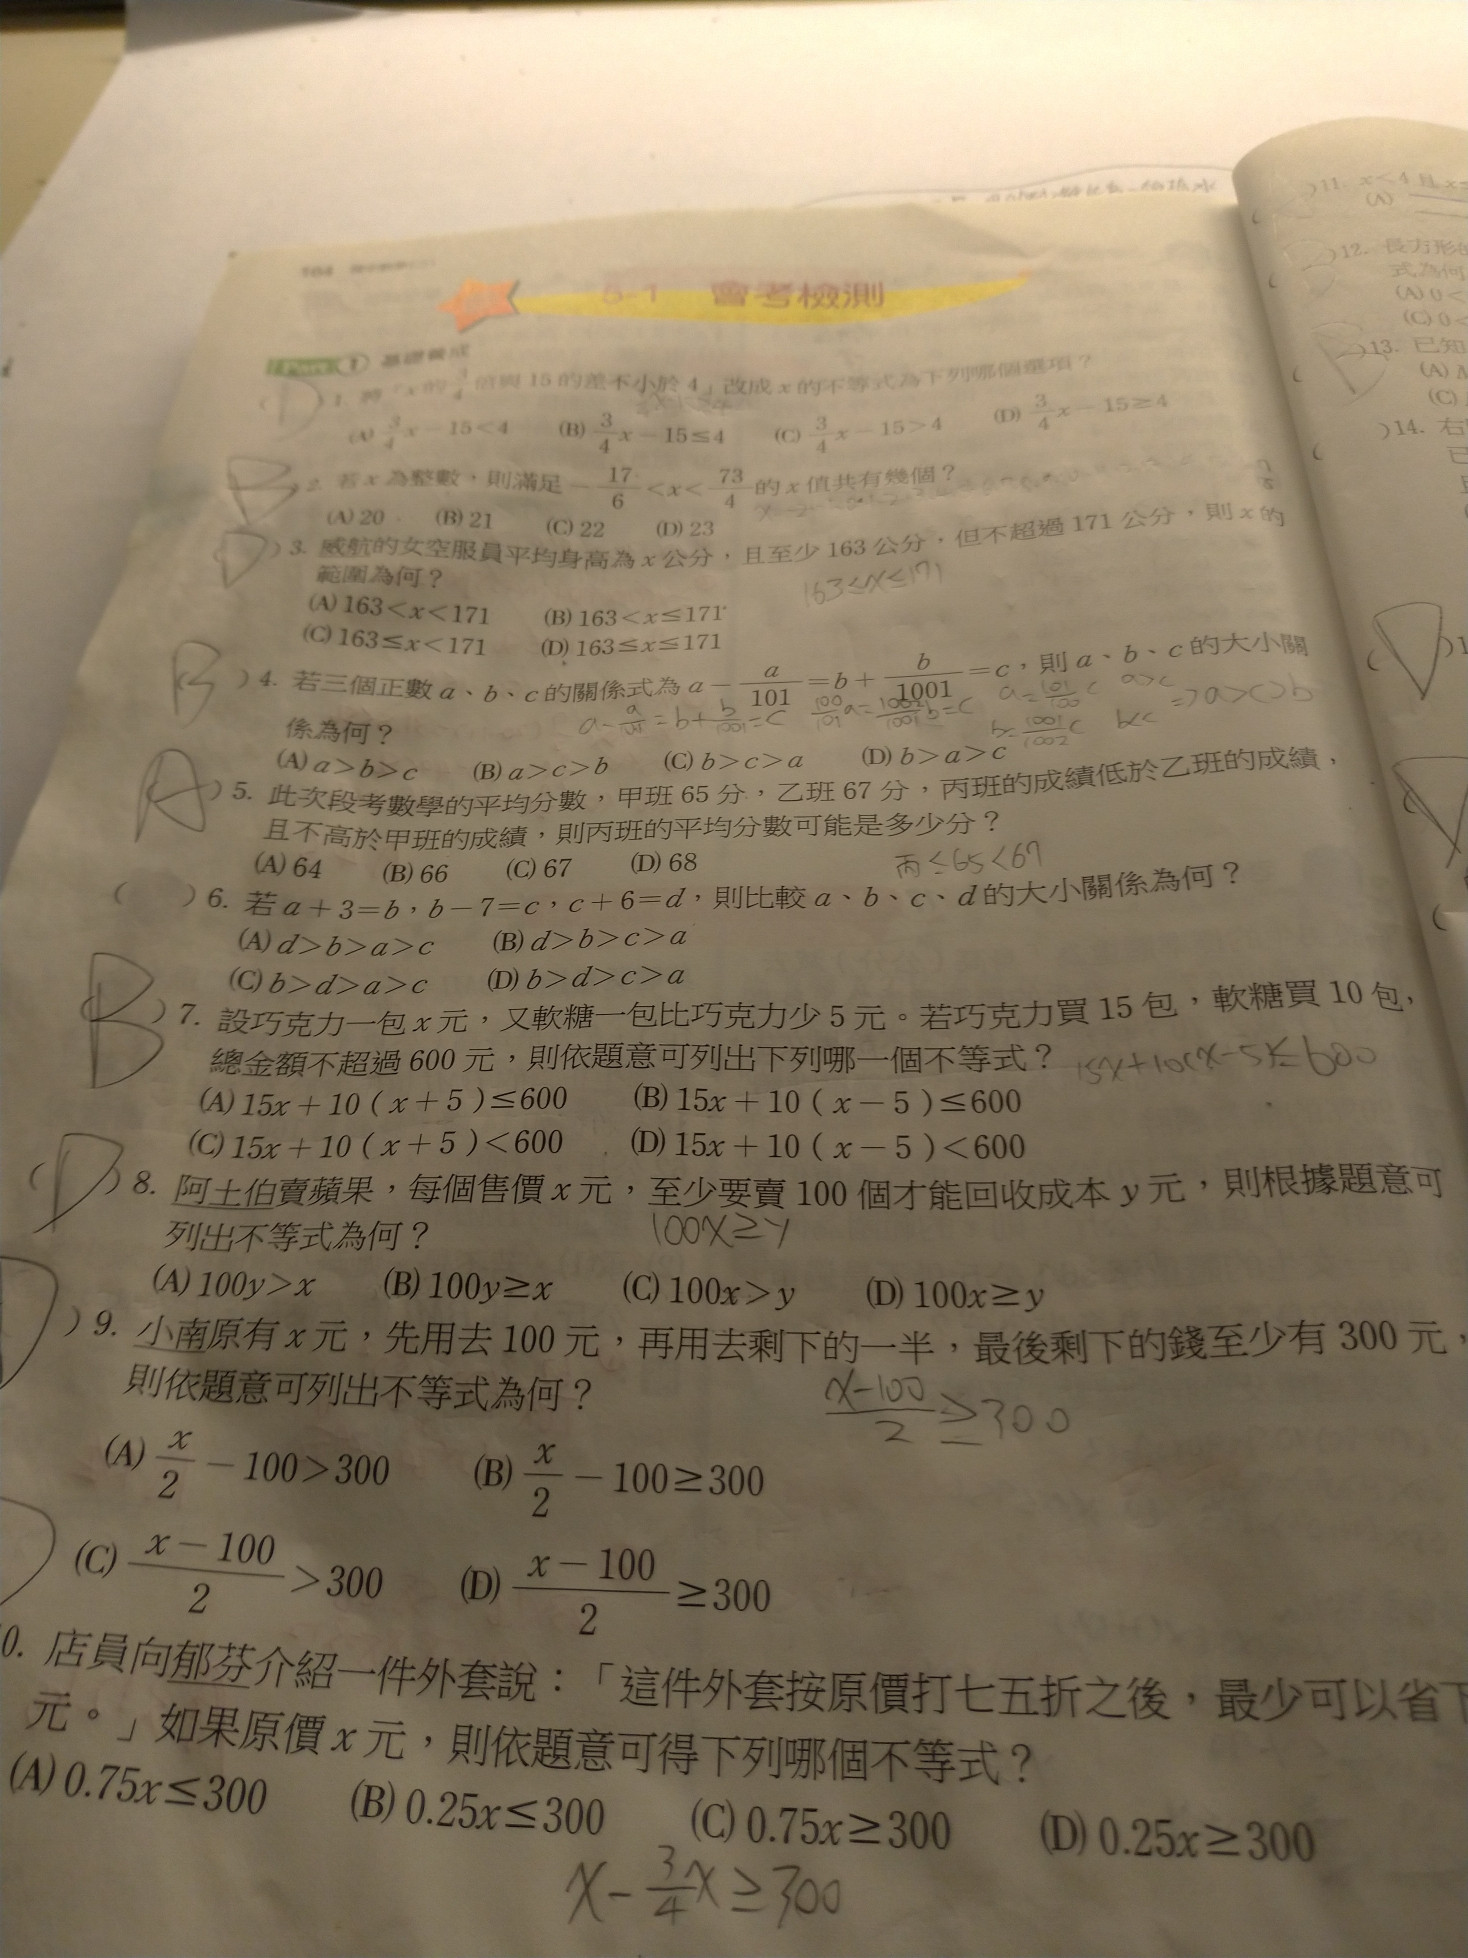 164
5-1 會考檢測
Part 1 基礎養成
(D) 1. 將「x 的 3/4 倍與 15 的差不小於 4」改成 x 的不等式為下列哪個選項？
(A) 3/4 x－15＜4 (B) 3/4 x－15≤4 (C) 3/4 x－15＞4 (D) 3/4 x－15≥4
(B) 2. 若 x 為整數，則滿足 －17/6＜x＜73/4 的 x 值共有幾個？
(A) 20 (B) 21 (C) 22 (D) 23
(D) 3. 威航的女空服員平均身高為 x 公分，且至少 163 公分，但不超過 171 公分，則 x 的
範圍為何？
163≤x≤171
(A) 163＜x＜171 (B) 163＜x≤171
(C) 163≤x＜171 (D) 163≤x≤171
(B) 4. 若三個正數 a、b、c 的關係式為 a－a/101＝b＋b/1001＝c，則 a、b、c 的大小關
係為何？
a-a/101=b+b/1001=c 100/101a=1002/1001b=c a=101/100c a>c
b=1001/1002c b<c => a>c>b
(A) a＞b＞c (B) a＞c＞b (C) b＞c＞a (D) b＞a＞c
(A) 5. 此次段考數學的平均分數，甲班 65 分，乙班 67 分，丙班的成績低於乙班的成績，
且不高於甲班的成績，則丙班的平均分數可能是多少分？
丙≤65<67
(A) 64 (B) 66 (C) 67 (D) 68
( ) 6. 若 a＋3＝b，b－7＝c，c＋6＝d，則比較 a、b、c、d 的大小關係為何？
(A) d＞b＞a＞c (B) d＞b＞c＞a
(C) b＞d＞a＞c (D) b＞d＞c＞a
(B) 7. 設巧克力一包 x 元，又軟糖一包比巧克力少 5 元。若巧克力買 15 包，軟糖買 10 包，
總金額不超過 600 元，則依題意可列出下列哪一個不等式？
15x+10(x-5)≤600
(A) 15x＋10（x＋5）≤600 (B) 15x＋10（x－5）≤600
(C) 15x＋10（x＋5）＜600 (D) 15x＋10（x－5）＜600
(D) 8. 阿土伯賣蘋果，每個售價 x 元，至少要賣 100 個才能回收成本 y 元，則根據題意可
列出不等式為何？
100x≥y
(A) 100y＞x (B) 100y≥x (C) 100x＞y (D) 100x≥y
) 9. 小南原有 x 元，先用去 100 元，再用去剩下的一半，最後剩下的錢至少有 300 元，
則依題意可列出不等式為何？
x-100/2≥300
(A) x/2－100＞300 (B) x/2－100≥300
(C) x－100/2＞300 (D) x－100/2≥300
0. 店員向郁芬介紹一件外套說：「這件外套按原價打七五折之後，最少可以省下
元。」如果原價 x 元，則依題意可得下列哪個不等式？
(A) 0.75x≤300 (B) 0.25x≤300 (C) 0.75x≥300 (D) 0.25x≥300
x-3/4x≥300
11. x＜4 且 x
(A)
12. 長方形
式為何
(A) 0＜
(C) 0
13. 已知
(A)
(C)
)14. 右